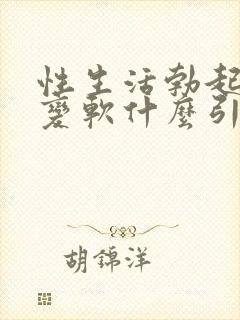 性生活勃起
变软什麼引
胡锦洋